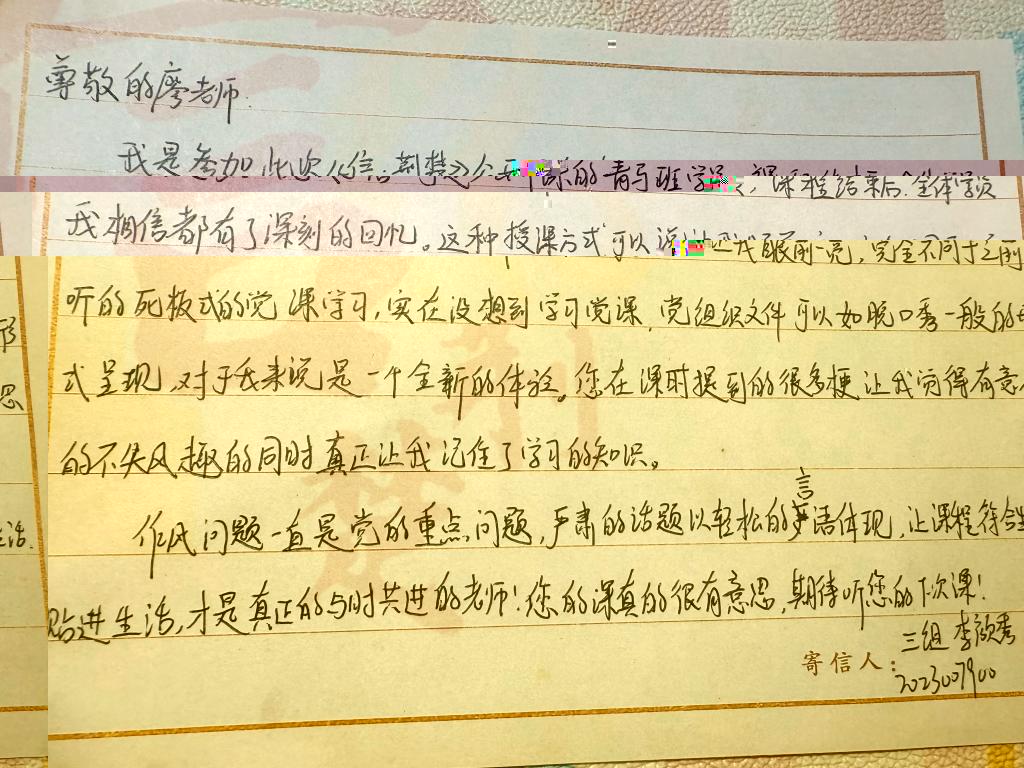 尊敬的廖老师.
我是参加此次《信·荆楚》公开课的青马班学员,课程结束后.全体学员
我相信都有了深刻的回忆。这种授课方式可以说让我眼前一亮,完全不同于之前
听的死板式的党课学习,实在没想到学习党课,党组织文件可以如脱口秀一般的
式呈现,对于我来说是一个全新的体验。您在课时提到的很多梗让我觉得有意
的不失风趣的同时真正让我记住了学习的知识。
作风问题一直是党的重点问题,严肃的话题以轻松的言语体现,让课程符合
贴进生活,才是真正的与时共进的老师!您的课真的很有意思,期待听您的下次课!
三组 李颜秀
寄信人:
2023007900